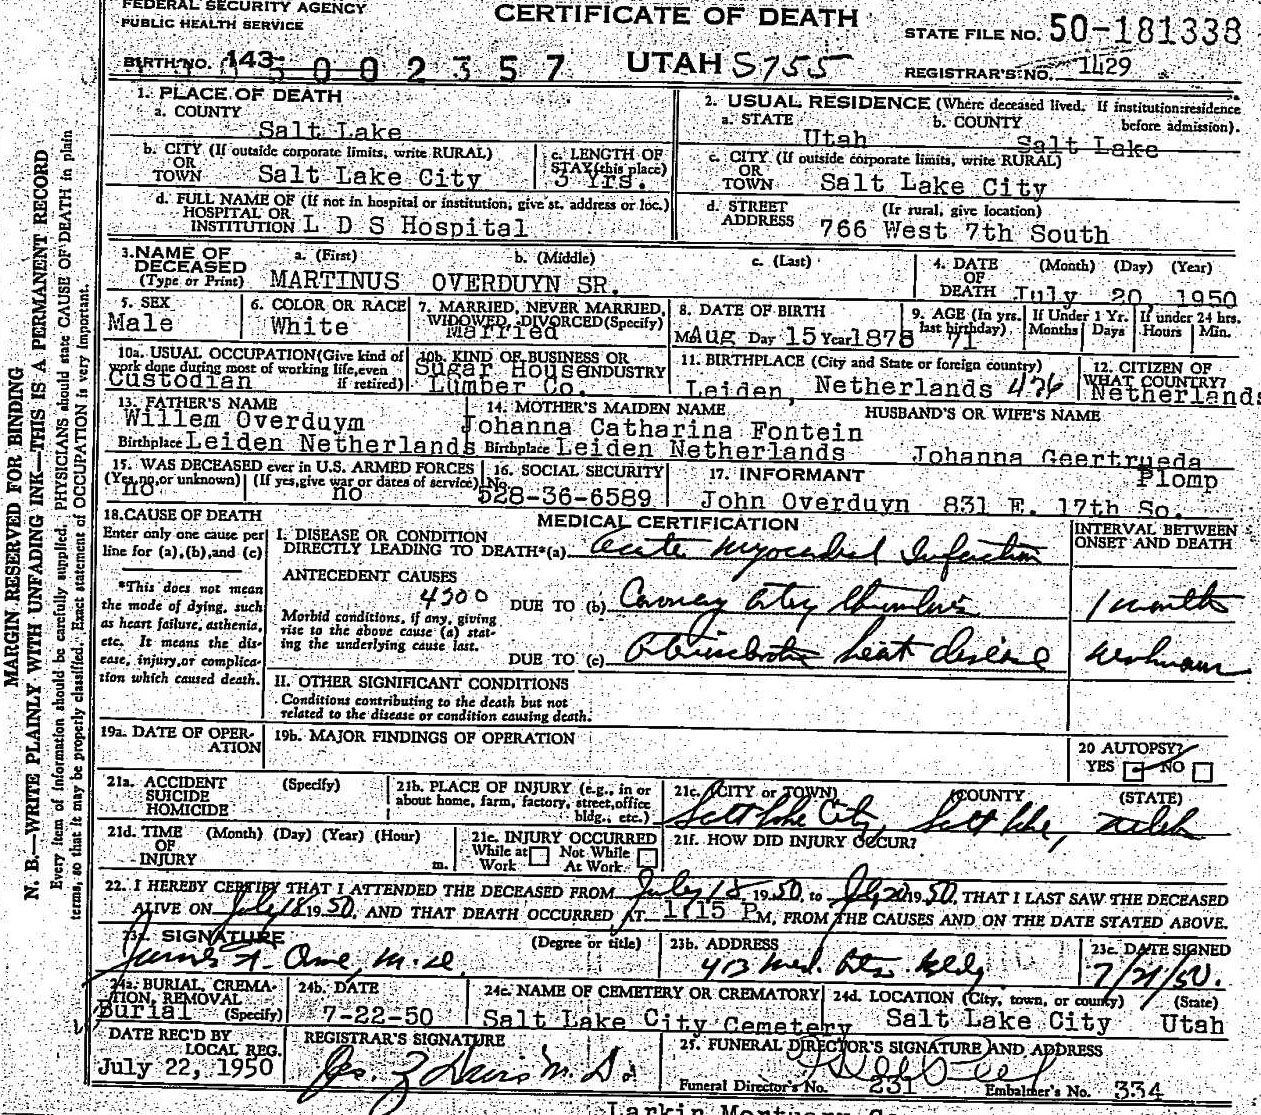 FEDERAL SECURITY AGENCY
PUBLIC HEALTH SERVICE
CERTIFICATE OF DEATH
STATE FILE NO. 50-181338
BIRTH NO. 143-
002357
UTAH S755
REGISTRAR'S NO. 1429
1. PLACE OF DEATH
a. COUNTY
Salt Lake
2. USUAL RESIDENCE (Where deceased lived. If institution:residence before admission).
a. STATE Utah b. COUNTY Salt Lake
b. CITY (If outside corporate limits, write RURAL)
OR
TOWN Salt Lake City
c. LENGTH OF
STAY (this place)
3 Yrs.
c. CITY (If outside corporate limits, write RURAL)
OR
TOWN Salt Lake City
d. FULL NAME OF (If not in hospital or institution, give st. address or loc.)
HOSPITAL OR
INSTITUTION L D S Hospital
d. STREET (If rural, give location)
ADDRESS 766 West 7th South
3. NAME OF DECEASED (Type or Print)
a. (First) b. (Middle) c. (Last)
MARTINUS OVERDUYN SR.
4. DATE OF DEATH (Month) (Day) (Year)
July 20 1950
5. SEX
Male
6. COLOR OR RACE
White
7. MARRIED, NEVER MARRIED, WIDOWED, DIVORCED (Specify)
Married
8. DATE OF BIRTH
M Aug Day 15 Year 1878
9. AGE (In yrs. last birthday)
71
If Under 1 Yr. Months Days
If under 24 hrs. Hours Min.
10a. USUAL OCCUPATION (Give kind of work done during most of working life, even if retired)
Custodian
10b. KIND OF BUSINESS OR INDUSTRY
Sugar House
Lumber Co.
11. BIRTHPLACE (City and State or foreign country)
Leiden, Netherlands 426
12. CITIZEN OF WHAT COUNTRY?
Netherlands
13. FATHER'S NAME
Willem Overduym
Birthplace Leiden Netherlands
14. MOTHER'S MAIDEN NAME
Johanna Catharina Fontein
Birthplace Leiden Netherlands
HUSBAND'S OR WIFE'S NAME
Johanna Geertrueda
Plomp
15. WAS DECEASED ever in U.S. ARMED FORCES
(Yes, no, or unknown) (If yes, give war or dates of service)
no no
16. SOCIAL SECURITY No.
528-36-6589
17. INFORMANT
John Overduyn 831 E. 17th So.
18. CAUSE OF DEATH
Enter only one cause per line for (a), (b), and (c)
*This does not mean the mode of dying, such as heart failure, asthenia, etc. It means the disease, injury, or complication which caused death.
MEDICAL CERTIFICATION
INTERVAL BETWEEN ONSET AND DEATH
I. DISEASE OR CONDITION
DIRECTLY LEADING TO DEATH*(a) Acute Myocardial Infarction
ANTECEDENT CAUSES
4200
Morbid conditions, if any, giving rise to the above cause (a) stating the underlying cause last.
DUE TO (b) Coronary artery thrombosis 1 month
DUE TO (c) Arteriosclerotic heart disease unknown
II. OTHER SIGNIFICANT CONDITIONS
Conditions contributing to the death but not related to the disease or condition causing death.
19a. DATE OF OPERATION
19b. MAJOR FINDINGS OF OPERATION
20 AUTOPSY?
YES NO
21a. ACCIDENT SUICIDE HOMICIDE (Specify)
21b. PLACE OF INJURY (e.g., in or about home, farm, factory, street, office bldg., etc.)
21c. (CITY or TOWN) (COUNTY (STATE)
Salt Lake City, Salt Lake, Utah
21d. TIME OF INJURY (Month) (Day) (Year) (Hour) m.
21e. INJURY OCCURRED
While at Work Not While At Work
21f. HOW DID INJURY OCCUR?
22. I HEREBY CERTIFY THAT I ATTENDED THE DECEASED FROM July 18, 1950, to July 20 1950, THAT I LAST SAW THE DECEASED
ALIVE ON July 18 1950, AND THAT DEATH OCCURRED AT 1:15 P M, FROM THE CAUSES AND ON THE DATE STATED ABOVE.
23a. SIGNATURE (Degree or title)
James M.D.
23b. ADDRESS
413 Med. Arts Bldg
23c. DATE SIGNED
7/21/50.
24a. BURIAL, CREMATION, REMOVAL (Specify)
Burial
24b. DATE
7-22-50
24c. NAME OF CEMETERY OR CREMATORY
Salt Lake City Cemetery
24d. LOCATION (City, town, or county) (State)
Salt Lake City Utah
DATE REC'D BY LOCAL REG.
July 22, 1950
REGISTRAR'S SIGNATURE
M.D.
25. FUNERAL DIRECTOR'S SIGNATURE AND ADDRESS
Funeral Director's No. 231 Embalmer's No. 334
Larkin Mortuary Co
MARGIN RESERVED FOR BINDING
N. B.—WRITE PLAINLY WITH UNFADING INK—THIS IS A PERMANENT RECORD
Every item of information should be carefully supplied. PHYSICIANS should state CAUSE OF DEATH in plain
terms, so that it may be properly classified. Exact statement of OCCUPATION is very important.